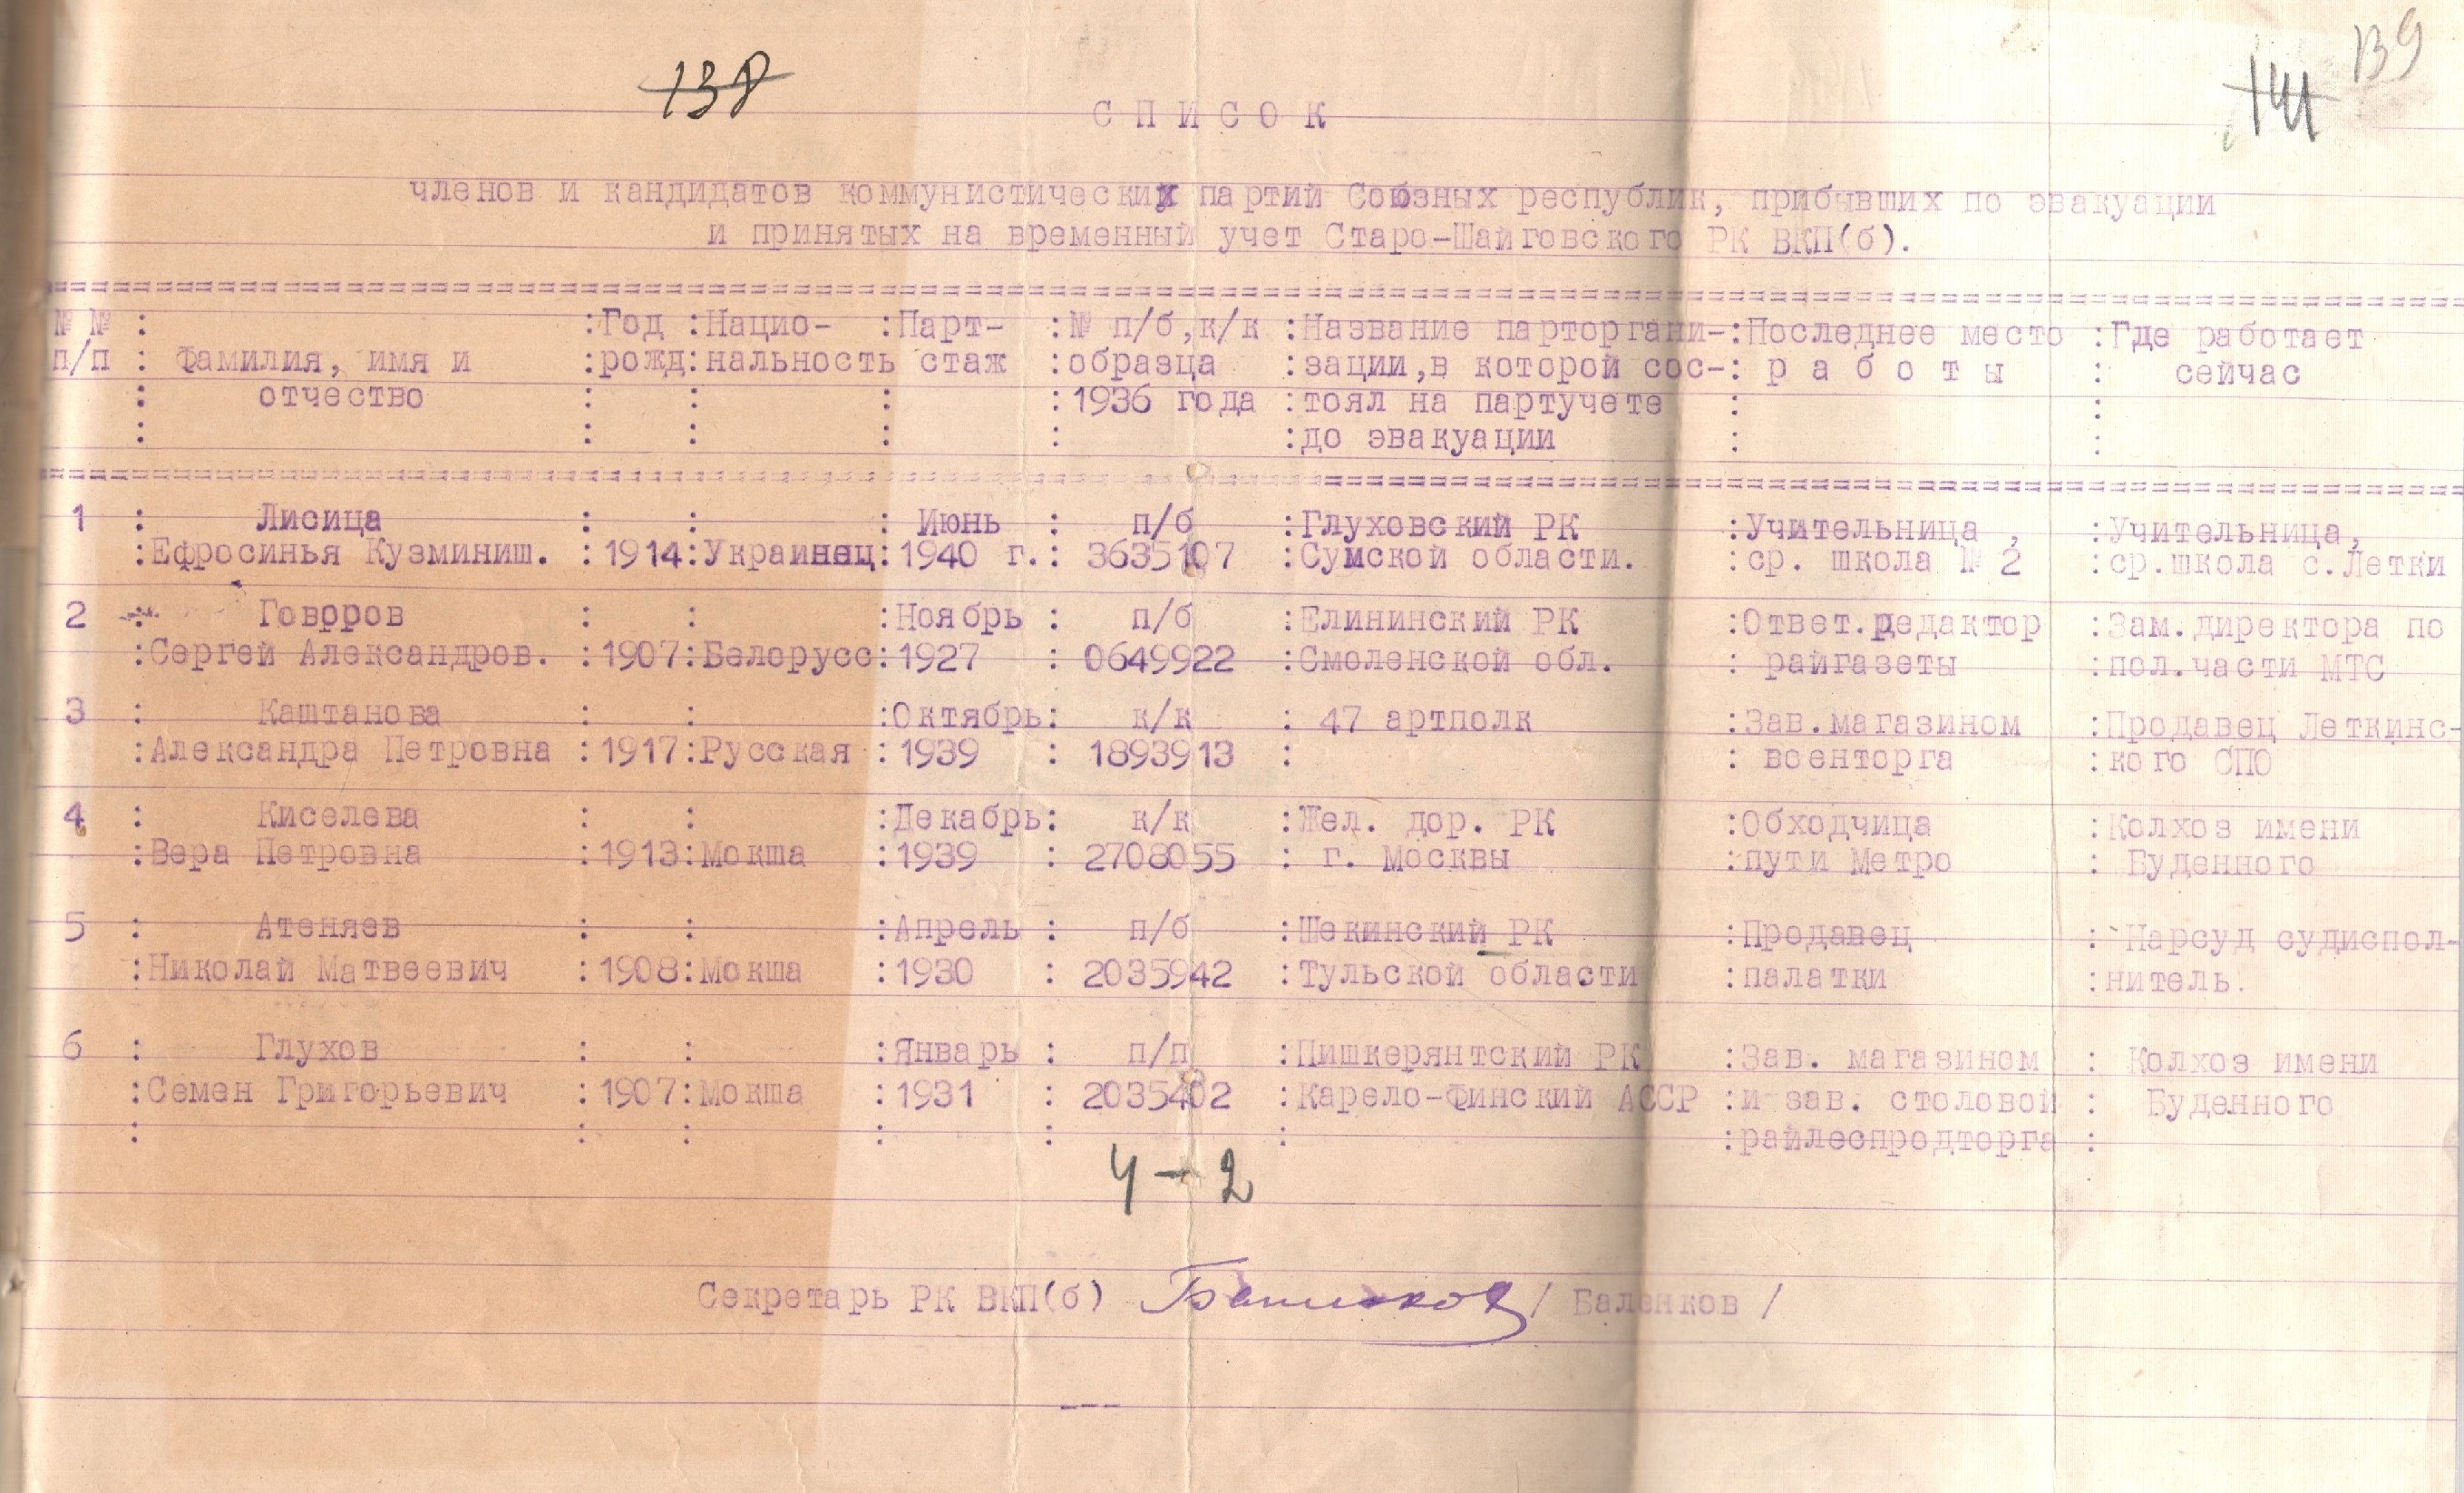 138
141 139
С П И С О К
членов и кандидатов коммунистических партий Союзных республик, прибывших по эвакуации
и принятых на временный учет Старо-Шайговского РК ВКП(б).
№ № : :Год :Нацио- :Парт- :№ п/б,к/к :Название парторгани-:Последнее место :Где работает
п/п : Фамилия, имя и :рожд:нальность стаж :образца :зации,в которой сос-: р а б о т ы : сейчас
: отчество : : : :1936 года :тоял на партучете : :
: : : : : :до эвакуации : :
1 : Лисица : : : Июнь : п/б :Глуховский РК :Учительница , :Учительница,
:Ефросинья Кузминиш. :1914:Украинец:1940 г.: 3635107 :Сумской области. :ср. школа № 2 :ср.школа с.Летки
2 : Говоров : : :Ноябрь : п/б :Елининский РК :Ответ.редактор :Зам.директора по
:Сергей Александров. :1907:Белорусс:1927 : 0649922 :Смоленской обл. : райгазеты :пол.части МТС
3 : Каштанова : : :Октябрь: к/к : 47 артполк :Зав.магазином :Продавец Леткинс-
:Александра Петровна :1917:Русская :1939 : 1893913 : : военторга :кого СПО
4 : Киселева : : :Декабрь: к/к :Жел. дор. РК :Обходчица :Колхоз имени
:Вера Петровна :1913:Мокша :1939 : 2708055 : г. Москвы :пути Метро : Буденного
5 : Атеняев : : :Апрель : п/б :Шекинский РК :Продавец : Нарсуд судиспол-
:Николай Матвеевич :1908:Мокша :1930 : 2035942 :Тульской области :палатки :нитель.
6 : Глухов : : :Январь : п/п :Пишкерянтский РК :Зав. магазином : Колхоз имени
:Семен Григорьевич :1907:Мокша :1931 : 2035402 :Карело-Финский АССР :и зав. столовой : Буденного
: : : : : : :райлеспродторга :
4 - 2
Секретарь РК ВКП(б) / Баленков /
---